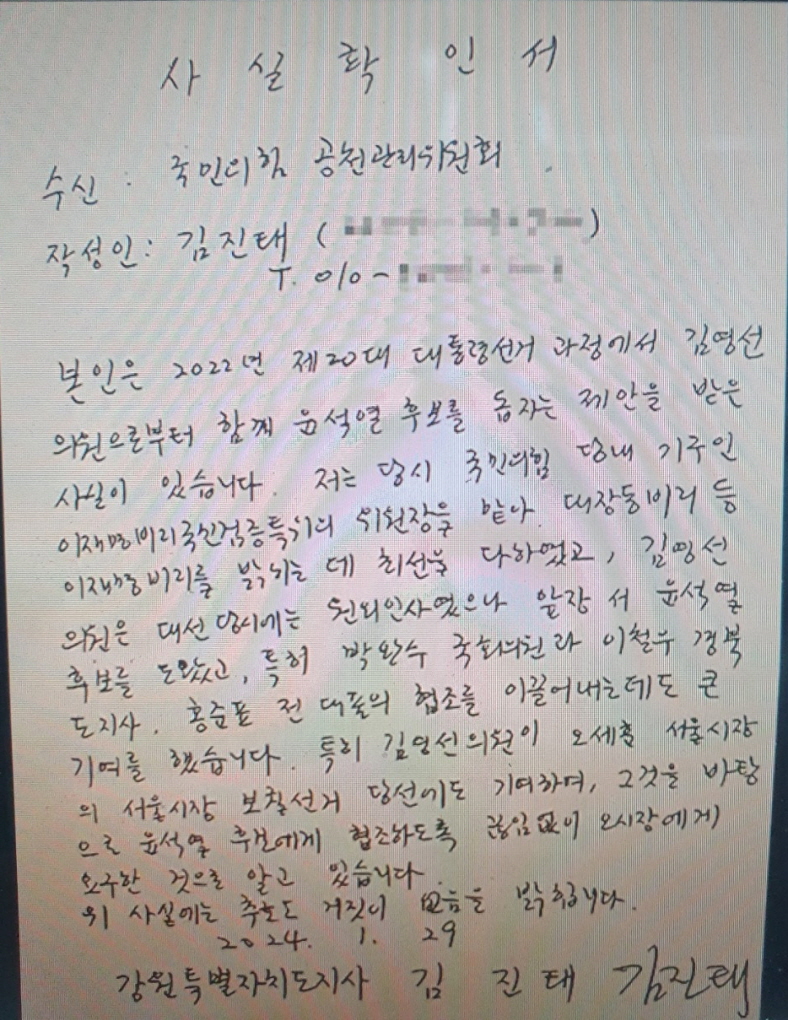 사 실 확 인 서
수신 : 국민의힘 공천관리위원회 .
작성인 : 김진태 ( )
T. 010 -
본인은 2022년 제20대 대통령선거 과정에서 김영선
의원으로부터 함께 윤석열 후보를 돕자는 제안을 받은
사실이 있습니다. 저는 당시 국민의힘 당내 기구인
이재명비리국민검증특위의 위원장을 맡아 대장동비리 등
이재명 비리를 밝히는 데 최선을 다하였고, 김영선
의원은 대선 당시에는 원외인사였으나 앞장 서 윤석열
후보를 도왔고, 특히 박완수 국회의원과 이철우 경북
도지사. 홍준표 전 대표의 협조를 이끌어내는데도 큰
기여를 했습니다. 특히 김영선의원이 오세훈 서울시장
의 서울시장 보칠선거 당선에도 기여하며, 그것을 바탕
으로 윤석열 후보에게 협조하도록 끊임없이 오시장에게
요구한 것으로 알고 있습니다.
위 사실에는 추호도 거짓이 없음을 밝힙니다.
2024. 1. 29
강원특별자치도지사 김 진 태 김진태